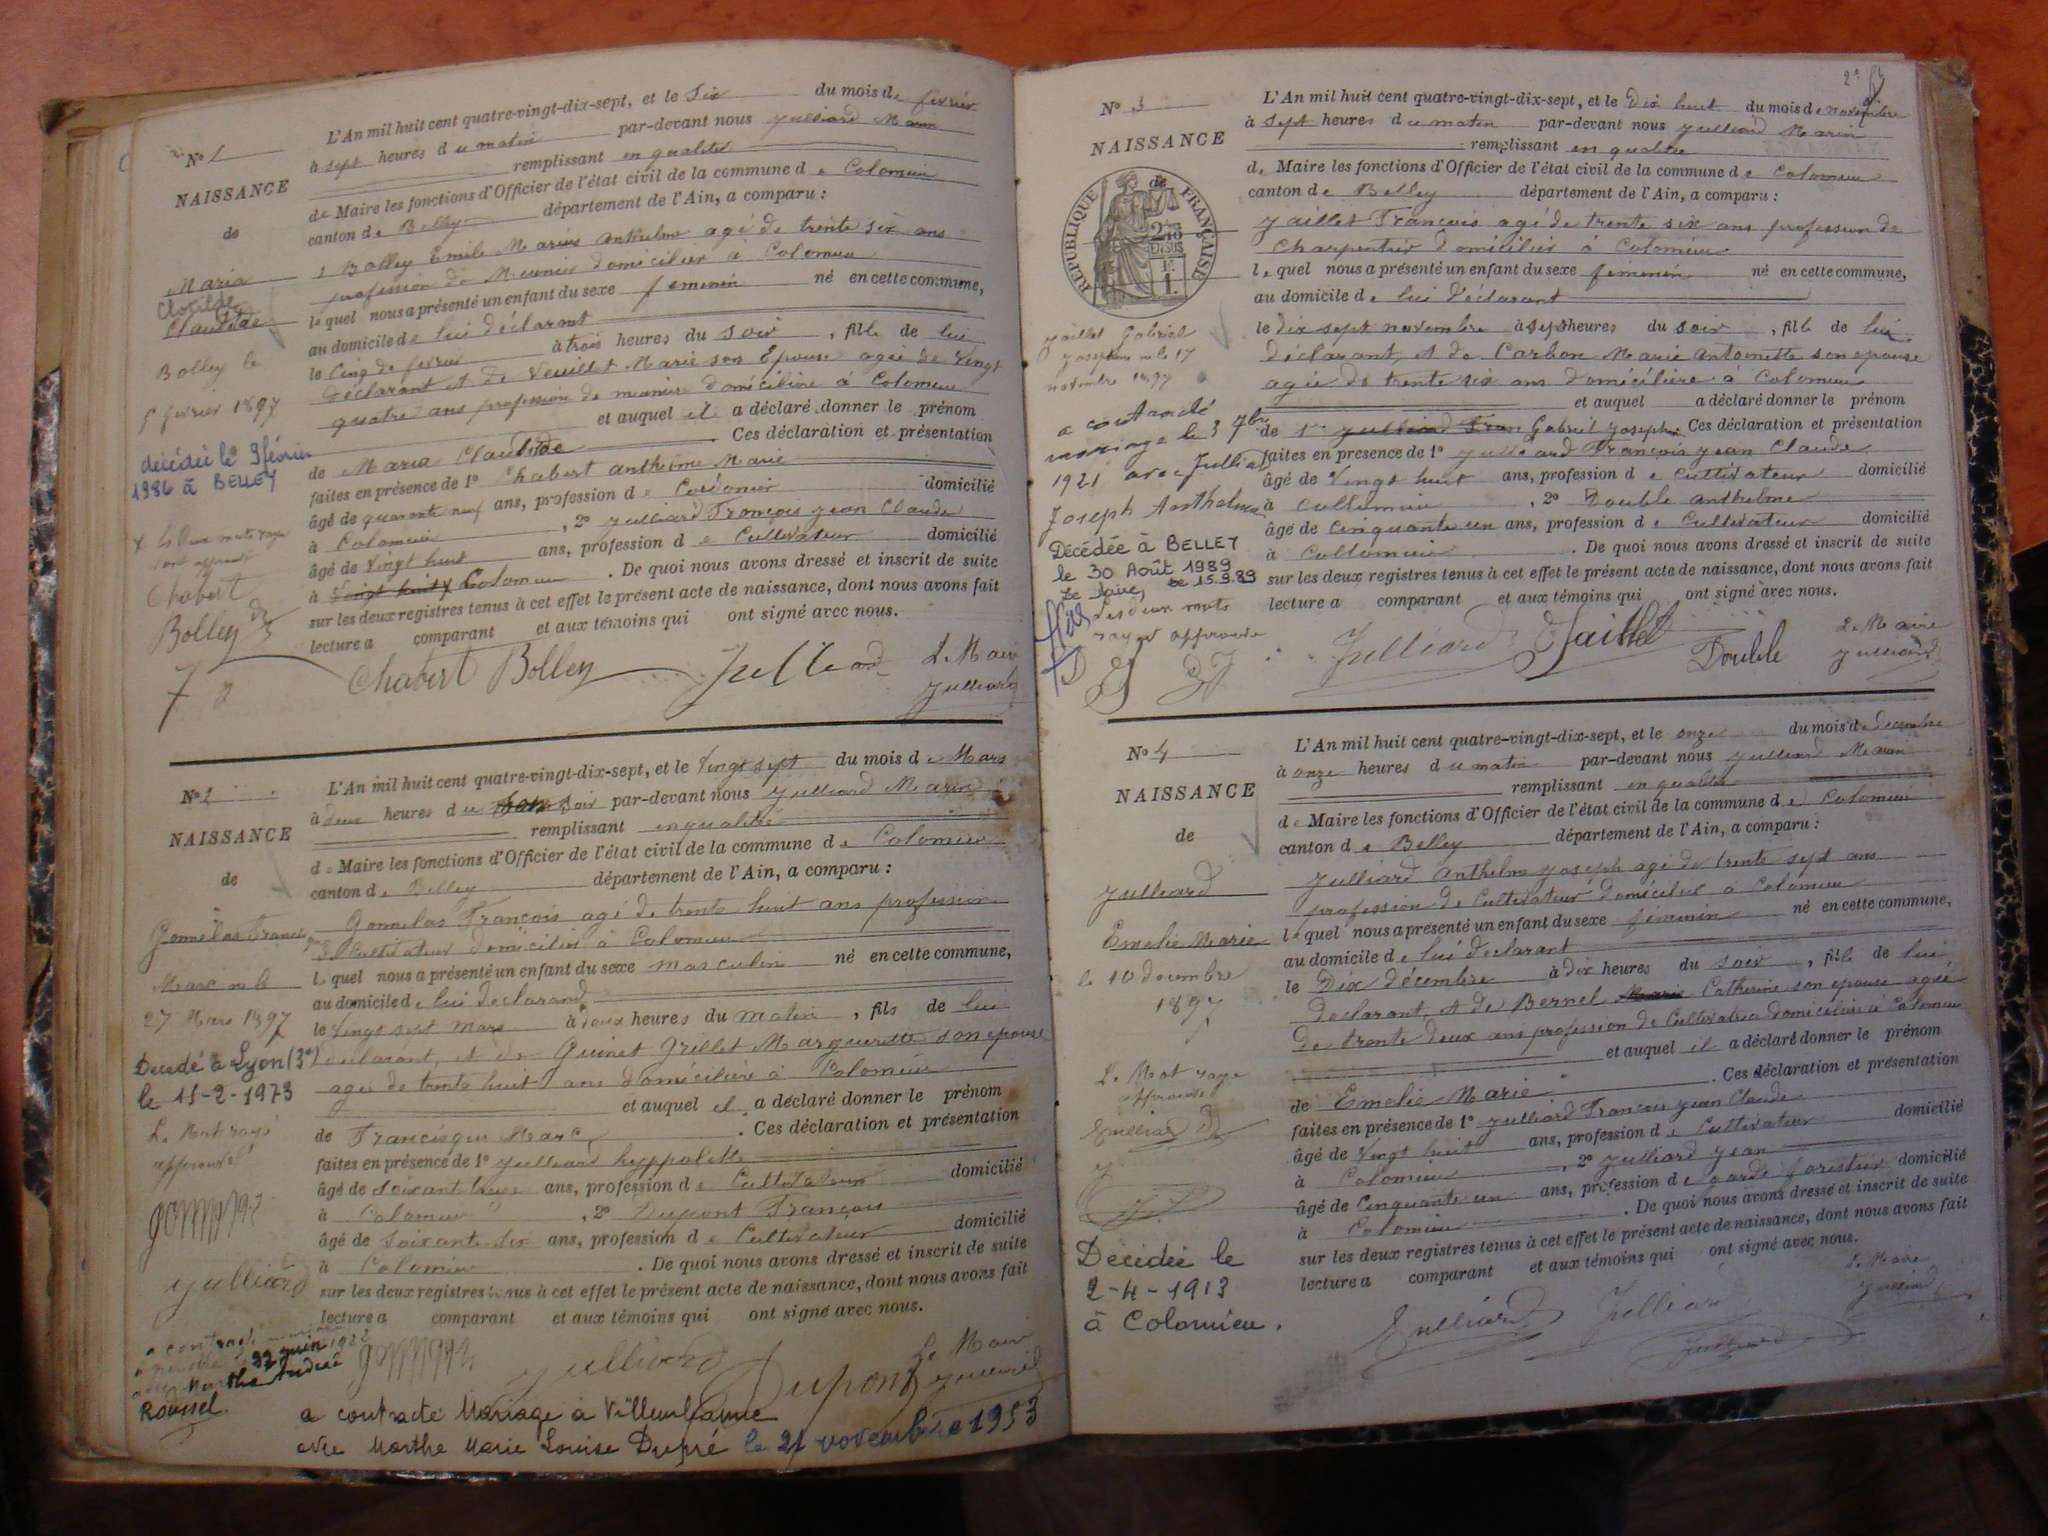 No 1
NAISSANCE
de
Maria
Clotilde
Claudide
Bolley le
5 février 1897
décédée le 9 février
1986 à BELLEY
Chabert
Bolley
L'An mil huit cent quatre-vingt-dix-sept, et le Six du mois de février
à sept heures du matin par-devant nous Julliard Marin
remplissant en qualité
de Maire les fonctions d'Officier de l'état civil de la commune de Colomieu
canton de Belley département de l'Ain, a comparu :
Bolley Emile Marius Anthelme agé de trente six ans
profession de Meunier domicilier à Colomieu
lequel nous a présenté un enfant du sexe feminin né en cette commune,
au domicile de lui déclarant
le Cinq de fevrier à trois heures du soir, fille de lui
déclarant et de Veuillet Marie son Epouse agée de Vingt
quatre ans profession de meunière domicilière à Colomieu
et auquel il a déclaré donner le prénom
de Maria Claudide Ces déclaration et présentation
faites en présence de 1º Chabert anthelme Marie
âgé de quarante neuf ans, profession de Cordonnier domicilié
à Colomieu, 2º Julliard François Jean Claude
âgé de Vingt huit ans, profession de Cultivateur domicilié
à Vingt huit Colomieu. De quoi nous avons dressé et inscrit de suite
sur les deux registres tenus à cet effet le présent acte de naissance, dont nous avons fait
lecture a comparant et aux témoins qui ont signé avec nous.
Chabert Bolley Julliard Le Maire
Julliard
No 2
NAISSANCE
de
Gonnelas Francis
Marc né le
27 Mars 1897
Decédé à Lyon (3e)
le 15-2-1973
Le Mot rayé
approuvé
Julliard
a contracté
22 juin 1922
avec Marthe Andrée
Roussel
L'An mil huit cent quatre-vingt-dix-sept, et le Vingt sept du mois de Mars
à deux heures du soir par-devant nous Julliard Marin
remplissant en qualité
de Maire les fonctions d'Officier de l'état civil de la commune de Colomieu
canton de Belley département de l'Ain, a comparu :
Gonnelas François agé de trente huit ans profession
de Cultivateur domicilier à Colomieu
lequel nous a présenté un enfant du sexe masculin né en cette commune,
au domicile de lui declarand
le Vingt sept mars à deux heures du matin, fils de lui
declarant, et de Guinet Grillet Marguerite son epouse
agée de trente huit ans domicilière à Colomieu
et auquel il a déclaré donner le prénom
de Francisque Marc. Ces déclaration et présentation
faites en présence de 1º Julliard hyppolitte
âgé de soixante ans, profession de Cultivateur domicilié
à Colomieu, 2º Dupont François
âgé de Soixante dix ans, profession de Cultivateur domicilié
à Colomieu. De quoi nous avons dressé et inscrit de suite
sur les deux registres tenus à cet effet le présent acte de naissance, dont nous avons fait
lecture a comparant et aux témoins qui ont signé avec nous.
Julliard Dupont Le Maire
Julliard
a contracté Mariage à Villeurbanne
avec Marthe Marie Louise Dupré le 21 novembre 1953
No 3
NAISSANCE
de
RÉPUBLIQUE FRANÇAISE
Jaillet Gabriel
Josephine né le 17
novembre 1897
a contracté
mariage le 3 7bre
1921 avec Julliard
Joseph Anthelme
Décédée à BELLEY
le 30 Août 1989
le 15.9.89
Les deux mots
rayés approuvé
L'An mil huit cent quatre-vingt-dix-sept, et le Dix huit du mois de novembre
à sept heures du matin par-devant nous Julliard Marin
remplissant en qualité
de Maire les fonctions d'Officier de l'état civil de la commune de Colomieu
canton de Belley département de l'Ain, a comparu :
Jaillet François agé de trente six ans profession de
Charpentier domicilier à Colomieu
lequel nous a présenté un enfant du sexe feminin né en cette commune,
au domicile de lui déclarant
le dix sept novembre à sept heures du soir, fille de lui
déclarant, et de Carbon Marie Antoinette son epouse
agée de trente six ans domicilière à Colomieu
et auquel a déclaré donner le prénom
de 1º Julliard Gabriel Joseph. Ces déclaration et présentation
faites en présence de 1º Julliard François Jean Claude
âgé de Vingt huit ans, profession de Cultivateur domicilié
à Collomieu, 2º Double Anthelme
âgé de Cinquante un ans, profession de Cultivateur domicilié
à Collomieu. De quoi nous avons dressé et inscrit de suite
sur les deux registres tenus à cet effet le présent acte de naissance, dont nous avons fait
lecture a comparant et aux témoins qui ont signé avec nous.
Julliard Jaillet Double Le Maire
Julliard
No 4
NAISSANCE
de
Julliard
Emelie Marie
le 10 decembre
1897
Le Mot rayé
approuvé
Décédée le
2-4-1913
à Colomieu.
L'An mil huit cent quatre-vingt-dix-sept, et le onze du mois de Decembre
à onze heures du matin par-devant nous Julliard Marin
remplissant en qualité
de Maire les fonctions d'Officier de l'état civil de la commune de Colomieu
canton de Belley département de l'Ain, a comparu :
Julliard Anthelme Joseph agé de trente sept ans
profession de Cultivateur domicilié à Colomieu
lequel nous a présenté un enfant du sexe féminin né en cette commune,
au domicile de lui declarant
le Dix décembre à dix heures du soir, fille de lui
declarant, et de Bernel Marie Catherine son epouse agée
de trente deux ans profession de Cultivatrice domicilière à Colomieu
et auquel il a déclaré donner le prénom
de Emelie Marie. Ces déclaration et présentation
faites en présence de 1º Julliard François Jean Claude
âgé de Vingt huit ans, profession de Cultivateur domicilié
à Colomieu, 2º Julliard Jean
âgé de Cinquante un ans, profession de garde forestier domicilié
à Colomieu. De quoi nous avons dressé et inscrit de suite
sur les deux registres tenus à cet effet le présent acte de naissance, dont nous avons fait
lecture a comparant et aux témoins qui ont signé avec nous.
Julliard Julliard Le Maire
Julliard